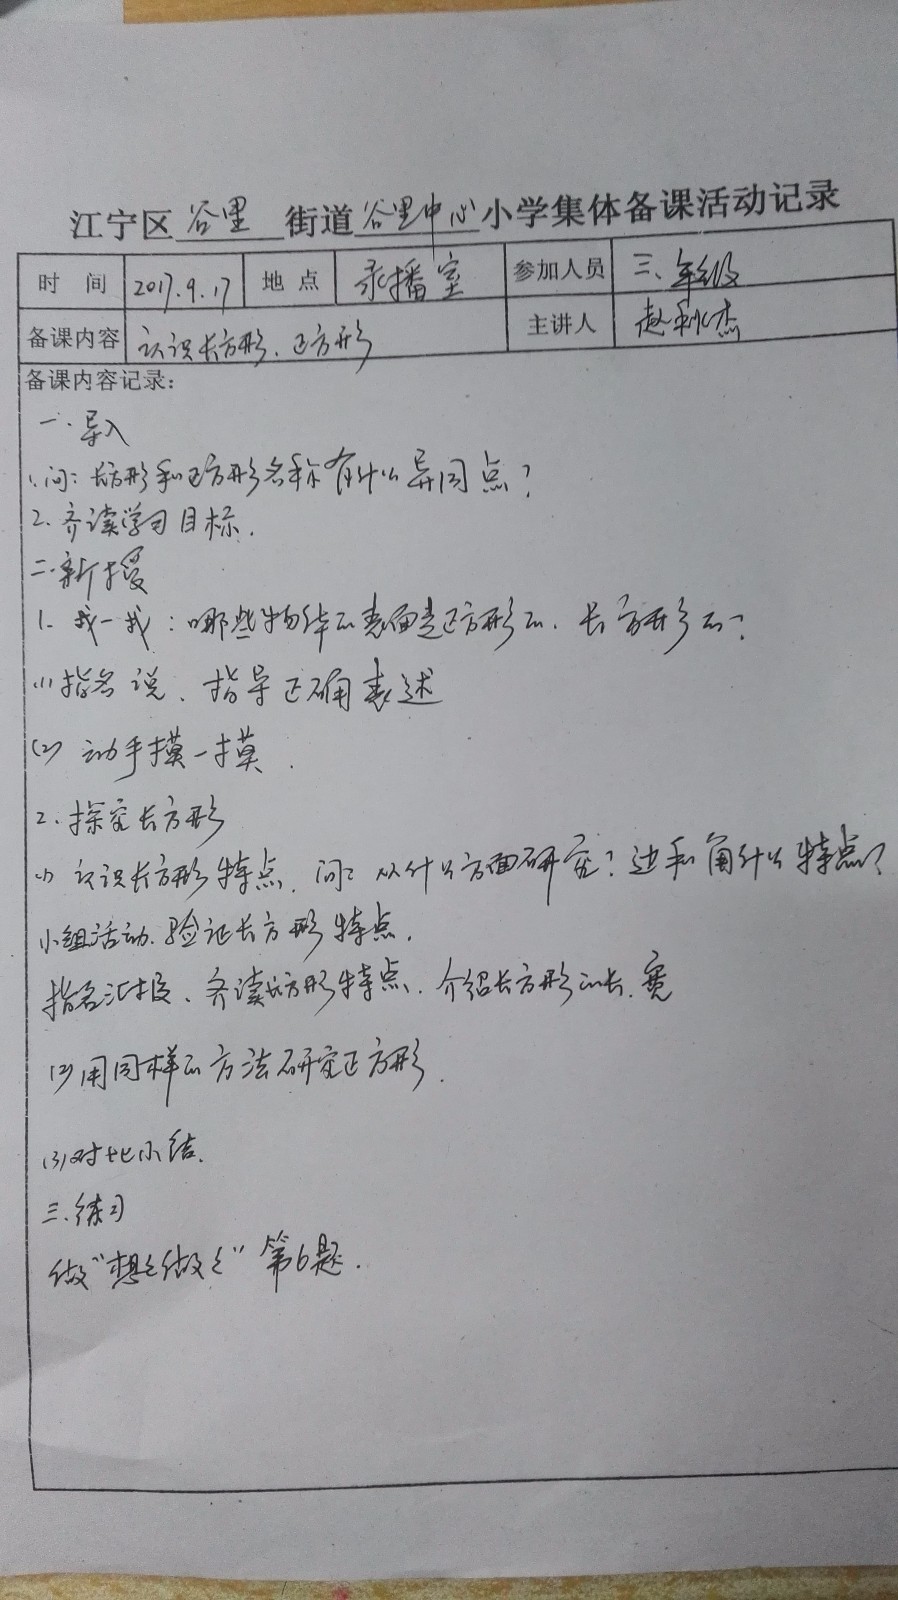 江宁区谷里街道谷里中心小学集体备课活动记录
时间 2017.9.17 地点 录播室 参加人员 三年级
备课内容 认识长方形、正方形 主讲人 赵秋杰
备课内容记录：
一、导入
1、问：长方形和正方形名称有什么异同点？
2、齐读学习目标。
二、新授
1、找一找：哪些物体的表面是正方形的、长方形的？
(1)指名说、指导正确表述
(2)动手摸一摸．
2、探究长方形
(1)认识长方形特点．问：从什么方面研究？边和角什么特点？
小组活动、验证长方形特点．
指名汇报、齐读长方形特点．介绍长方形的长、宽
(2)用同样的方法研究正方形．
(3)对比小结．
三、练习
做“想想做做”第6题．